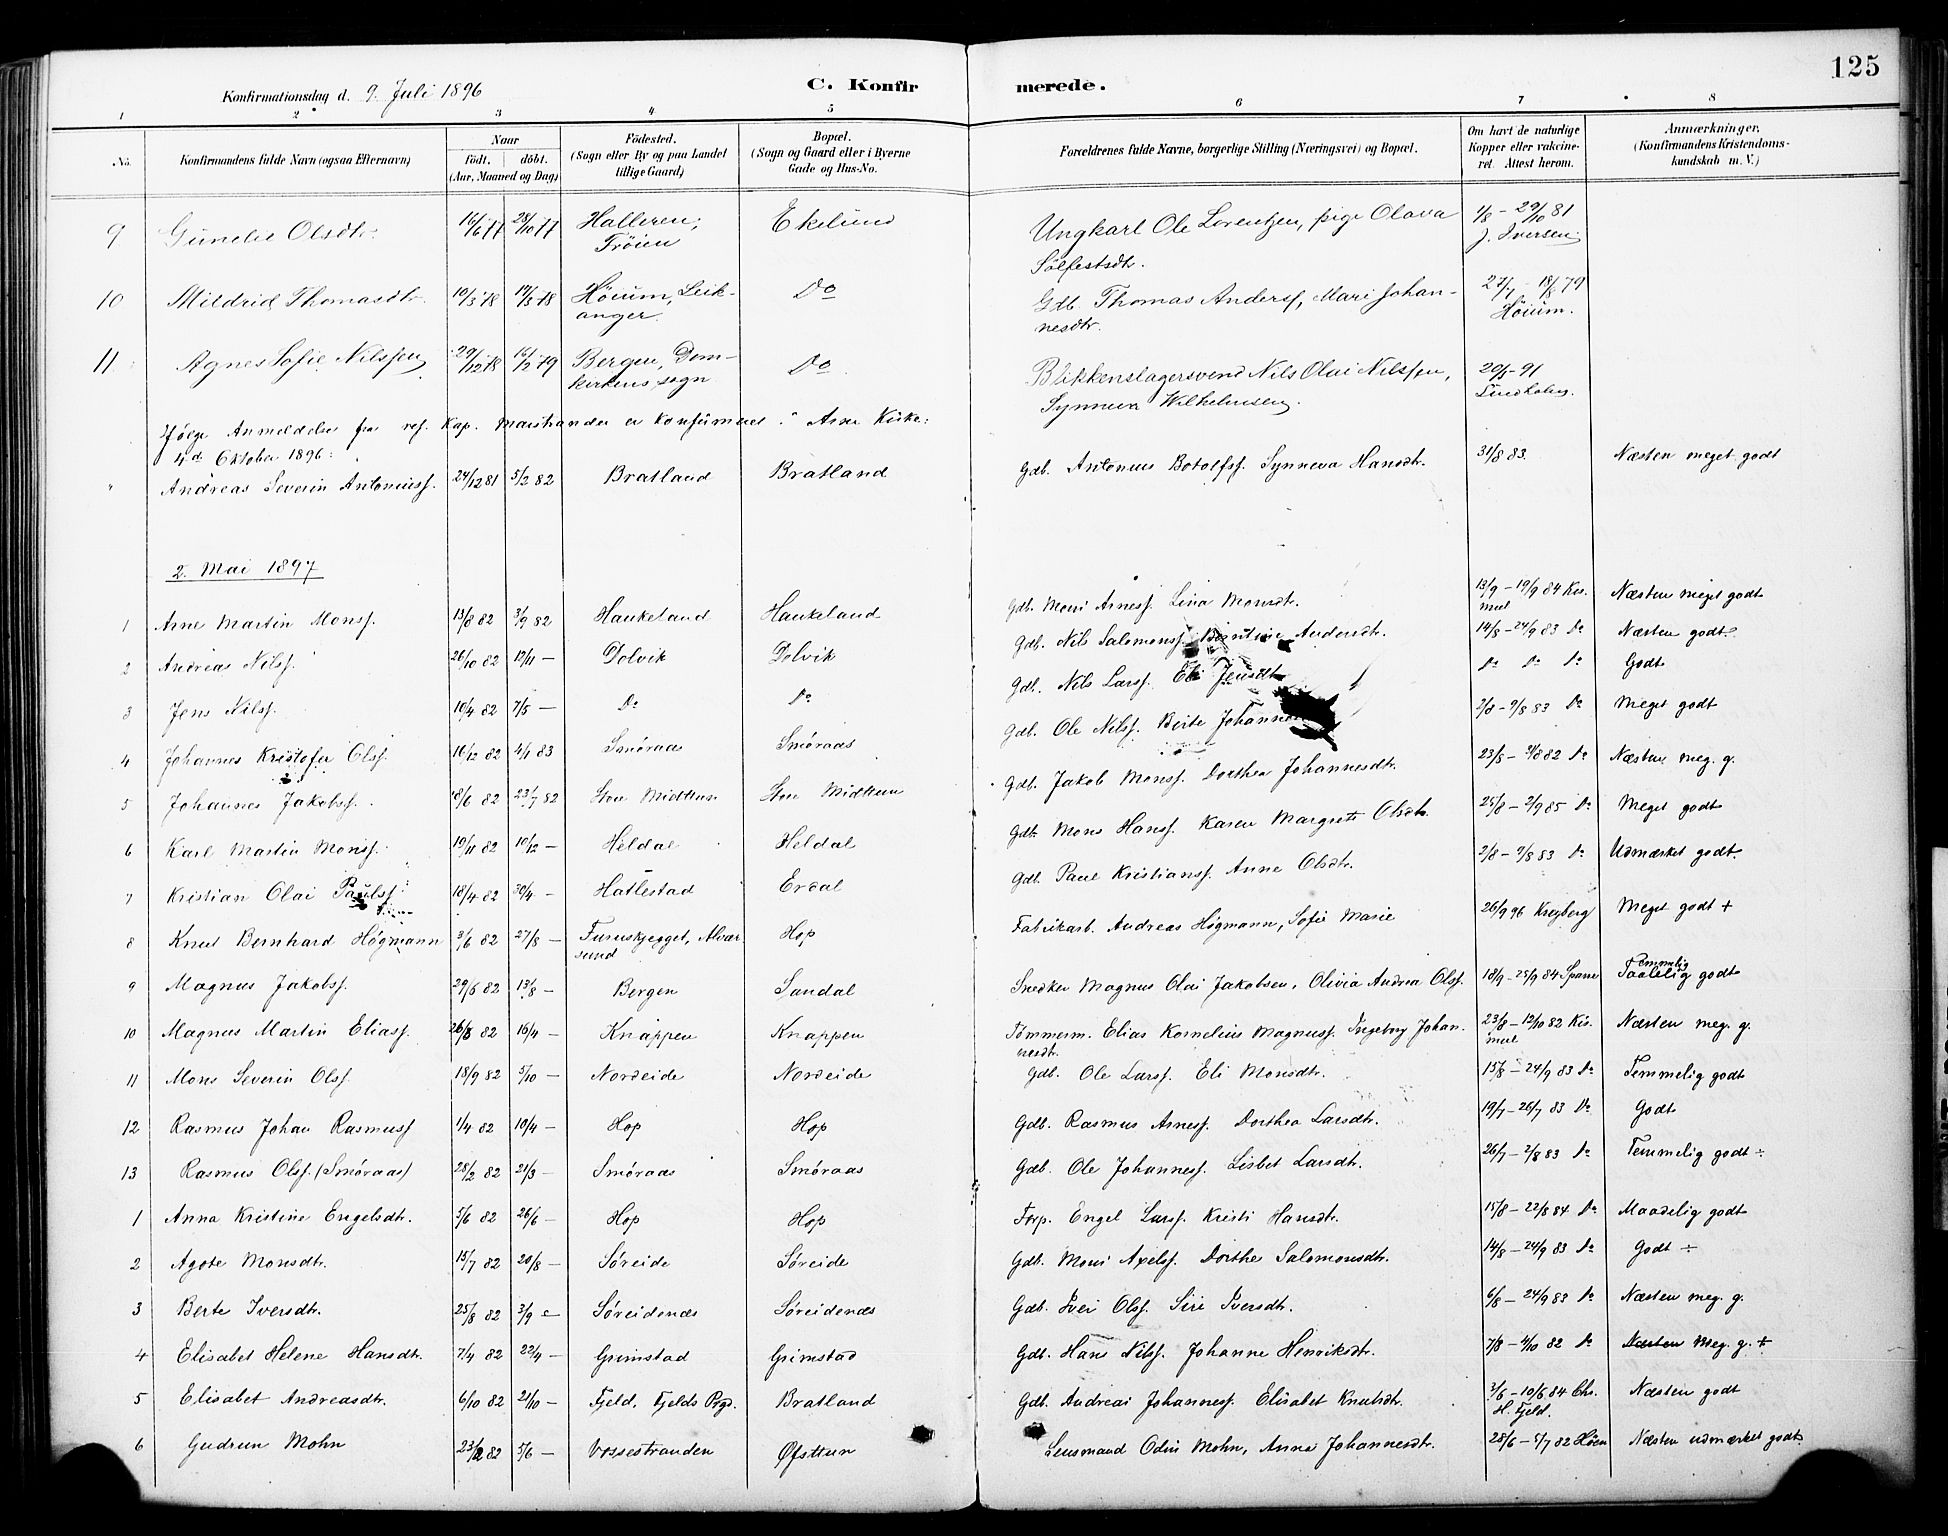 125
Konfirmationsdag d. 9. Juli 1896 C. Konfirmerede.
1 2 3 4 5 6 7 8
No. Konfirmandens fulde Navn (ogsaa Efternavn) Naar Födt. döbt. (Aar, Maaned og Dag) Födested. (Sogn eller By og paa Landet tillige Gaard) Bopæl. (Sogn og Gaard eller i Byerne Gade og Hus-No. Forældrenes fulde Navne, borgerlige Stilling (Næringsvei) og Bopæl. Om havt de naturlige Kopper eller vakcineret. Attest herom. Anmærkninger. (Konfirmandens Kristendomskundskab m. V.)
9 Gunelie Olsdtr. 16/6 77 28/10 77 Halleren, Fröien Ekelund Ungkarl Ole Lorentzen, pige Olava Sölfestsdtr. 1/8 - 29/10 81 J. Iversen
10 Mildrid Thomasdtr. 10/3 78 17/3 78 Höium, Leikanger Do Gdb. Thomas Andersf, Mari Johannesdtr. 27/7 - 18/8 79 Höium.
11 Agnes Sofie Nilssen 29/12 78 16/2 79 Bergen, Domkirkens sogn Do Blikkenslagersvend Nils Olai Nilssen, Synneva Wilhelmsen. 20/5 - 91 Lindholm
Ifölge Anmeldelse fra ref. Kap. Marstrander er konfirmeret i Arne Kirke:
4d Oktober 1896:
" Andreas Severin Antoniusf. 24/12 81 5/2 82 Bratland Bratland Gdb. Antonius Botolfsf. Synneva Hansdtr. 31/8 83. Næsten meget godt
2. Mai 1897
1 Arne Martin Monsf. 13/8 82 3/9 82 Haukeland Haukeland Gdb. Mons Arnesf. Lina Monsdtr. 13/9 - 19/9 84 Kismul Næsten meget godt
2 Andreas Nilsf. 26/10 82 12/11 - Dolvik Dolvik Gdb. Nils Salomonsf. Andersdtr. 14/8 - 24/9 83 Do Næsten godt
3 Jens Nilsf. 10/4 82 7/5 - Do Do Gdb. Nils Larsf. Eli Jensdtr Do Do Do Godt
4 Johannes Kristofer Olsf. 16/12 82 4/1 83 Smöraas Smöraas Gdb. Ole Nilsf. Berte Johannes 2/8 - 9/8 83 Do Meget godt
5 Johannes Jakobsf. 18/6 82 23/7 82 Store Midttun Store Midttun Gdb. Jakob Monsf. Dorthea Johannesdtr. 23/8 - 31/8 82 Do Næsten meg. g.
6 Karl Martin Monsf. 19/11 82 10/12 - Heldal Heldal Gdb. Mons Hansf. Karen Margrete Olsdtr. 25/8 - 2/9 85 Do Meget godt
7 Kristian Olai Paulsf. 18/4 82 30/4 - Hatlestad Erdal Gdb. Paul Kristiansf. Anne Olsdtr. 2/8 - 9/8 83 Do Udmærket godt.
8 Knut Bernhard Högmann 3/6 82 27/8 - Furuskjegget, Alværsund Hop Fabrikarb. Andreas Högmann, Sofie Marie 26/9 96 Kreyberg Meget godt +
9 Magnus Jakobsf. 29/6 82 13/8 - Bergen Sandal Snedker Magnus Olai Jakobsen, Olivia Andrea Olsf. 18/9 - 25/9 84 Spane Temmelig Taalelig godt
10 Magnus Martin Eliasf. 26/3 82 16/4 - Knappen Knappen Tömmerm. Elias Kornelius Magnusf. Ingeborg Johannesdtr. 23/8 - 12/10 82 Kismul Næsten meg. g.
11 Mons Severin Olsf. 18/9 82 5/10 - Nordeide Nordeide Gdb. Ole Larsf. Eli Monsdtr. 15/8 - 24/9 83 Do Temmelig godt
12 Rasmus Johan Rasmusf 1/4 82 10/4 - Hop Hop Gdb. Rasmus Arnesf. Dorthea Larsdtr. 19/7 - 26/7 83 Do Godt
13 Rasmus Olsf. (Smöraas) 28/2 82 21/3 - Smöraas Smöraas Gdb. Ole Johannesf. Lisbet Larsdtr. 26/7 - 2/8 83 Do Temmelig godt ÷
1 Anna Kristine Engelsdtr. 5/6 82 26/6 - Hop Hop Forp. Engel Larsf. Kristi Hansdtr. 15/8 - 22/8 84 Do Maadelig godt
2 Agate Monsdtr. 15/7 82 20/8 - Söreide Söreide Gdb. Mons Axelsf. Dorthe Salomonsdtr. 14/8 - 24/9 83 Do Godt ÷
3 Berte Iversdtr. 25/8 82 3/9 - Söreidenæs Söreidenæs Gdb. Iver Olsf. Siri Iversdtr. 6/8 - 24/9 83 Do Næsten meg. g.
4 Elisabet Helene Hansdtr. 7/4 82 22/4 - Grimstad Grimstad Gdb. Hans Nilsf. Johanne Henriksdtr. 7/8 - 4/10 82 Do Næsten Meg. g. ÷
5 Elisabet Andreasdtr. 6/10 82 21/10 - Fjeld, Fjelds Prgd. Bratland Gdb. Andreas Johannesf. Elisabet Knutsdtr. 3/6 - 10/6 84 Chr. H. Fjeld. Næsten godt
6 Gudrun Mohn 23/2 82 5/6 - Vossestranden Öfsttun Lensmand Odin Mohn, Anna Johannesdtr. 28/6 - 5/7 82 Höen Næsten udmærket godt